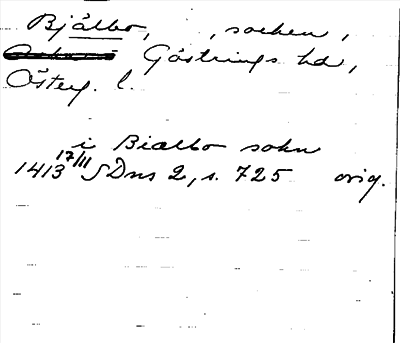 Bjälbo, , socken,
Göstrings hd,
Österg. l.
i Bialbo sokn
1413 17/11 SDns 2, s. 725 orig.